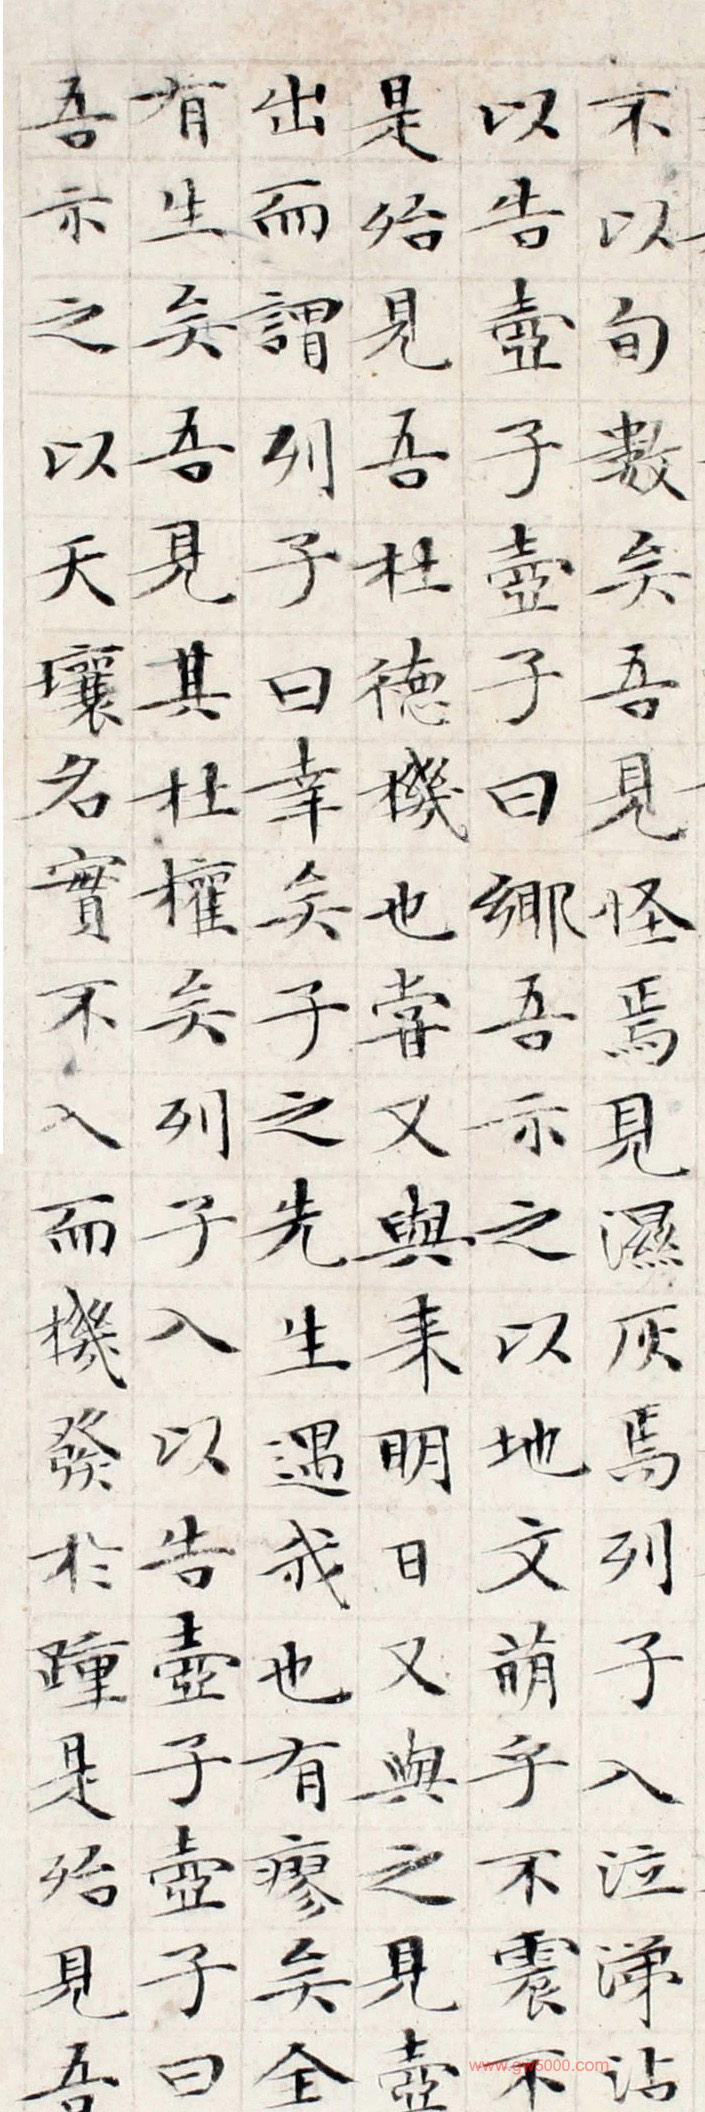 不以旬數矣吾見怪焉見濕灰焉列子入泣涕沾
以告壺子壺子曰鄉吾示之以地文萌乎不震不
是殆見吾杜德機也嘗又與来明日又與之見壺
出而謂列子曰幸矣子之先生遇我也有瘳矣全
有生矣吾見其杜權矣列子入以告壺子壺子曰
吾示之以天壤名實不入而機發於踵是殆見吾
www.gw5000.com